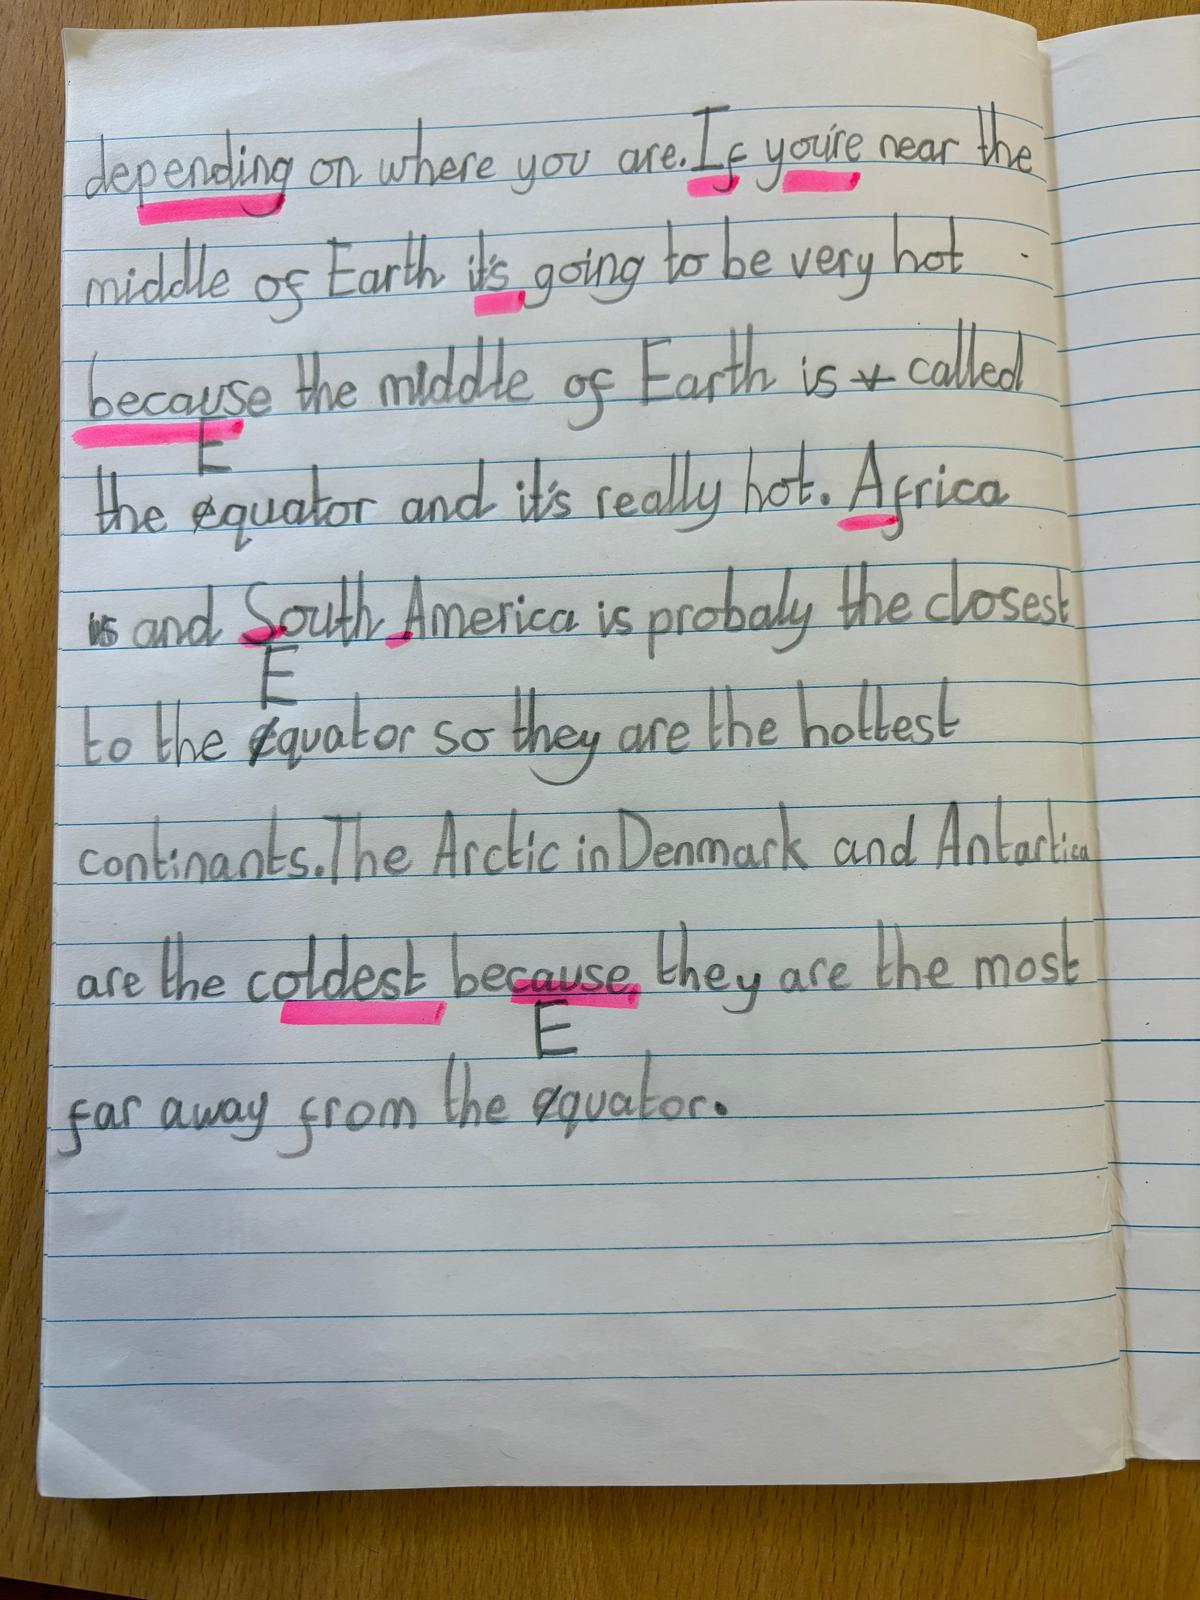 depending on where you are. If you're near the
middle of Earth it's going to be very hot
because the middle of Earth is called
E
the equator and it's really hot. Africa
is and South America is probaly the closest
E
to the equator so they are the hottest
continants. The Arctic in Denmark and Antartica
are the coldest because they are the most
E
far away from the equator.